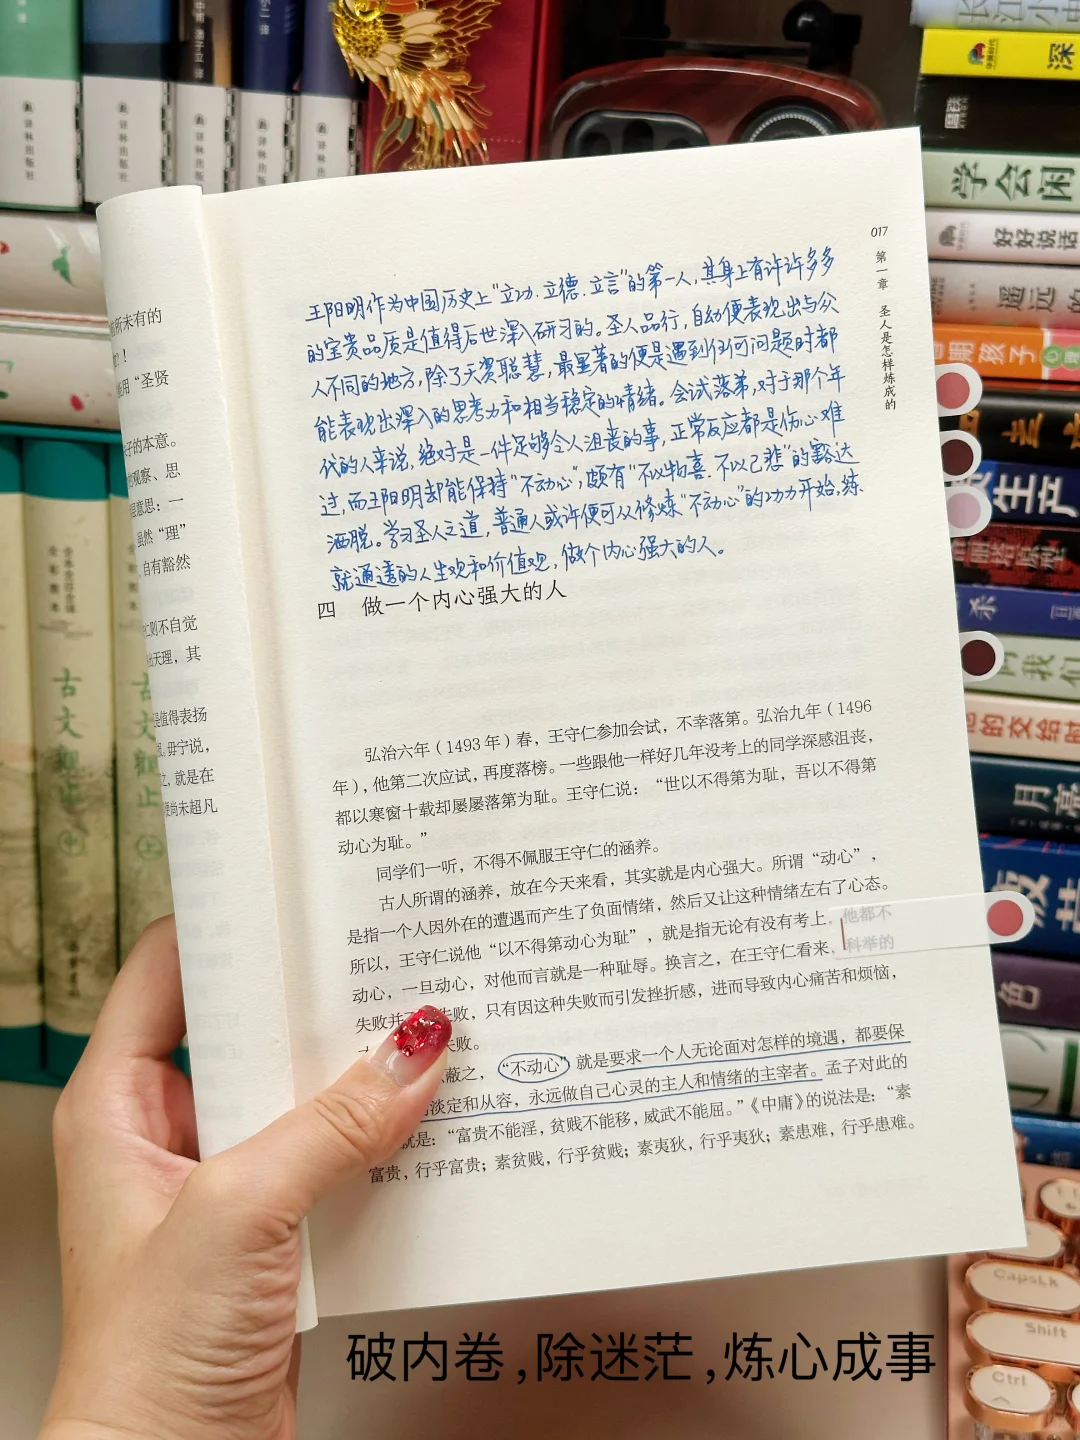 译林出版社
译林出版社
译林出版社
译林出版社
译林出版社
长江
深
学会闲
好好说话
遥远的
生产
杀
我们
的交给时
月亮
色
古文观止
中
古文观止
上
CapsLk
Shift
Ctrl
前所未有的
！
用“圣贤
子的本意。
观察、思
意思：一
虽然“理”
自有豁然
仁则不自觉
出天理，其
是值得表扬
毋宁说，
之，就是在
便尚未超凡
017
第一章 圣人是怎样炼成的
王阳明作为中国历史上“立功、立德、立言”的第一人，其身上有许许多多
的宝贵品质是值得后世深入研习的。圣人品行，自幼便表现出与众
人不同的地方，除了天资聪慧，最显著的便是遇到任何问题时都
能表现出深入的思考力和相当稳定的情绪。会试落第，对于那个年
代的人来说，绝对是一件足够令人沮丧的事，正常反应都是伤心难
过，而王阳明却能保持“不动心”，颇有“不以物喜、不以己悲”的豁达
洒脱。学习圣人之道，普通人或许便可从修炼“不动心”的功力开始，练
就通透的人生观和价值观，做个内心强大的人。
四 做一个内心强大的人
弘治六年（1493年）春，王守仁参加会试，不幸落第。弘治九年（1496
年），他第二次应试，再度落榜。一些跟他一样好几年没考上的同学深感沮丧，
都以寒窗十载却屡屡落第为耻。王守仁说：“世以不得第为耻，吾以不得第
动心为耻。”
同学们一听，不得不佩服王守仁的涵养。
古人所谓的涵养，放在今天来看，其实就是内心强大。所谓“动心”，
是指一个人因外在的遭遇而产生了负面情绪，然后又让这种情绪左右了心态。
所以，王守仁说他“以不得第动心为耻”，就是指无论有没有考上，他都不
动心，一旦动心，对他而言就是一种耻辱。换言之，在王守仁看来，科举的
失败并 失败，只有因这种失败而引发挫折感，进而导致内心痛苦和烦恼，
失败。
蔽之，“不动心”就是要求一个人无论面对怎样的境遇，都要保
淡定和从容，永远做自己心灵的主人和情绪的主宰者。孟子对此的
就是：“富贵不能淫，贫贱不能移，威武不能屈。”《中庸》的说法是：“素
富贵，行乎富贵；素贫贱，行乎贫贱；素夷狄，行乎夷狄；素患难，行乎患难。
破内卷,除迷茫,炼心成事